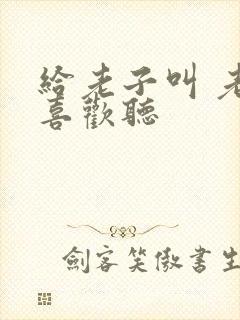 給老子叫 老
喜歡聽
劍客笑傲書生